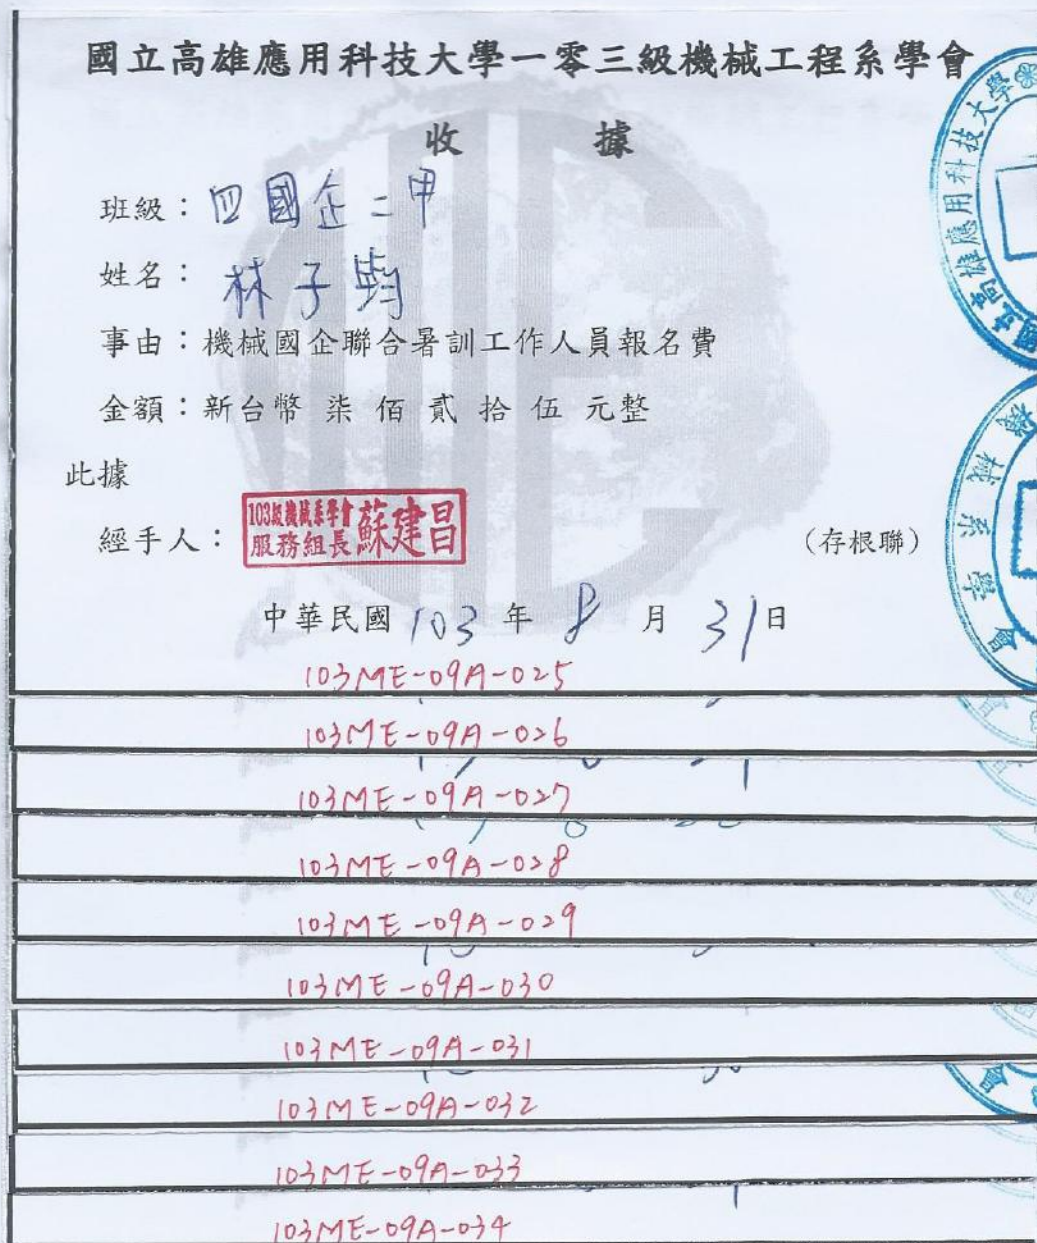 國立高雄應用科技大學一零三級機械工程系學會
收 據
班級：四國企二甲
姓名：林子鈞
事由：機械國企聯合署訓工作人員報名費
金額：新台幣 柒 佰 貳 拾 伍 元整
此據
經手人：
103級機械系學會
服務組長 蘇建昌
(存根聯)
中華民國 103 年 8 月 31日
103ME-09A-025
103ME-09A-026
103ME-09A-027
103ME-09A-028
103ME-09A-029
103ME-09A-030
103ME-09A-031
103ME-09A-032
103ME-09A-033
103ME-09A-034
國立高雄應用科技大學